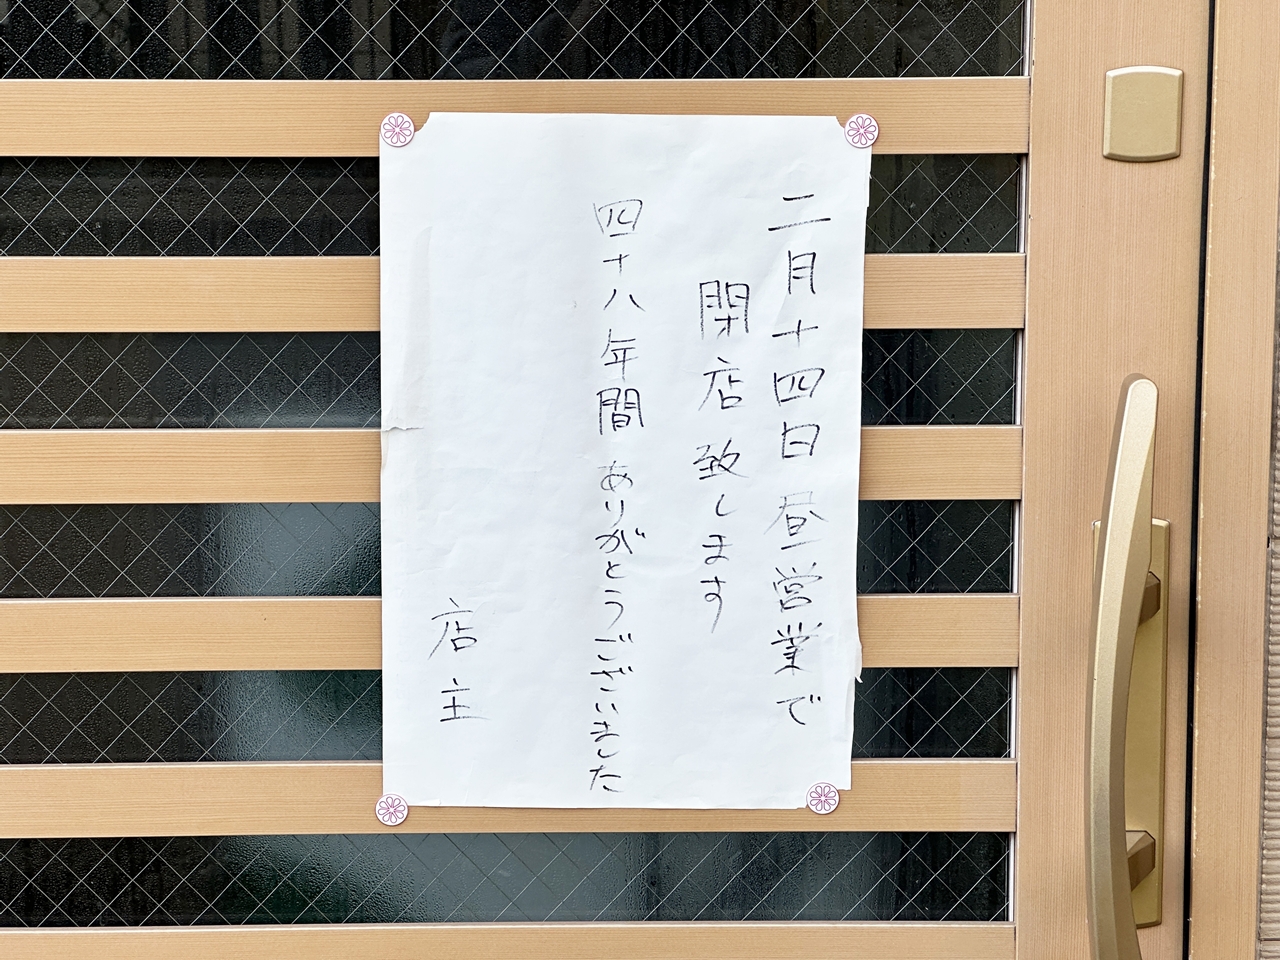 二月十四日昼営業で
閉店致します
四十八年間ありがとうございました
店主